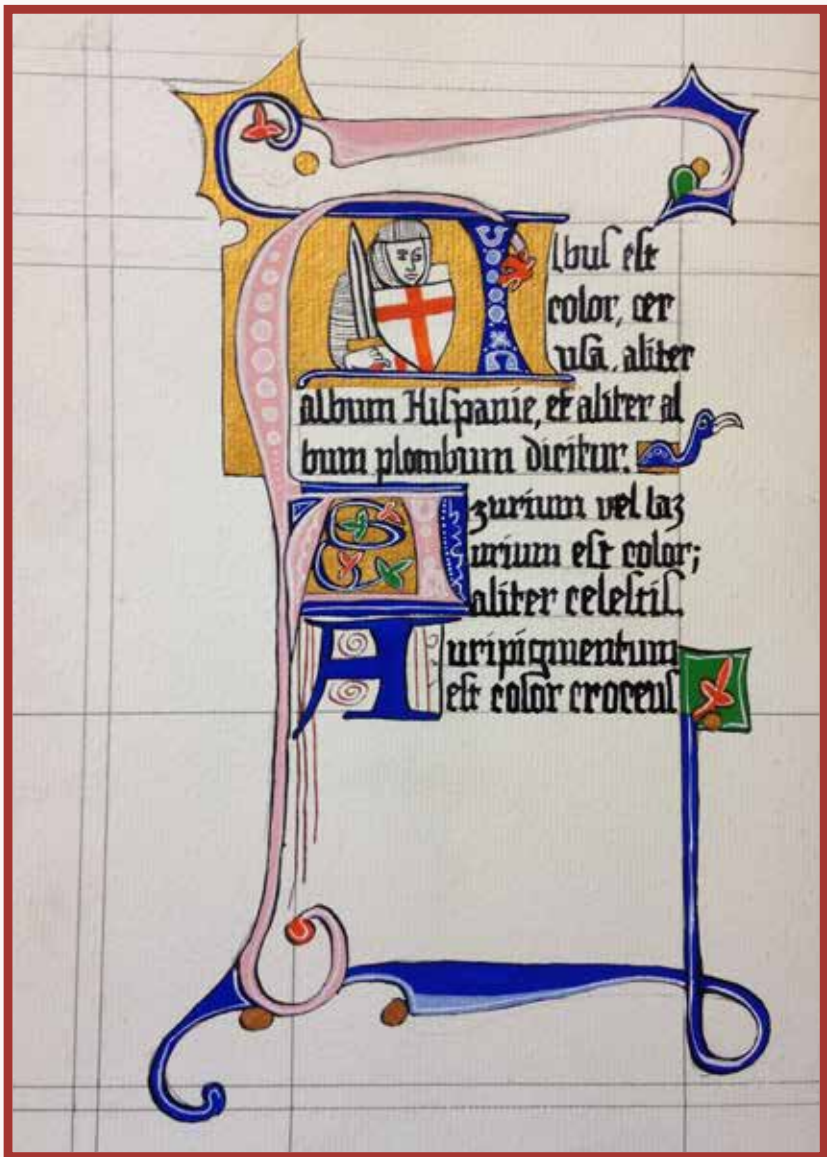 Albus est
color, cer
usa, aliter
album Hispanie, et aliter al
bum plombum dicitur.
Azurium vel laz
urium est color;
aliter celestis.
Auripigmentum
est color croceus